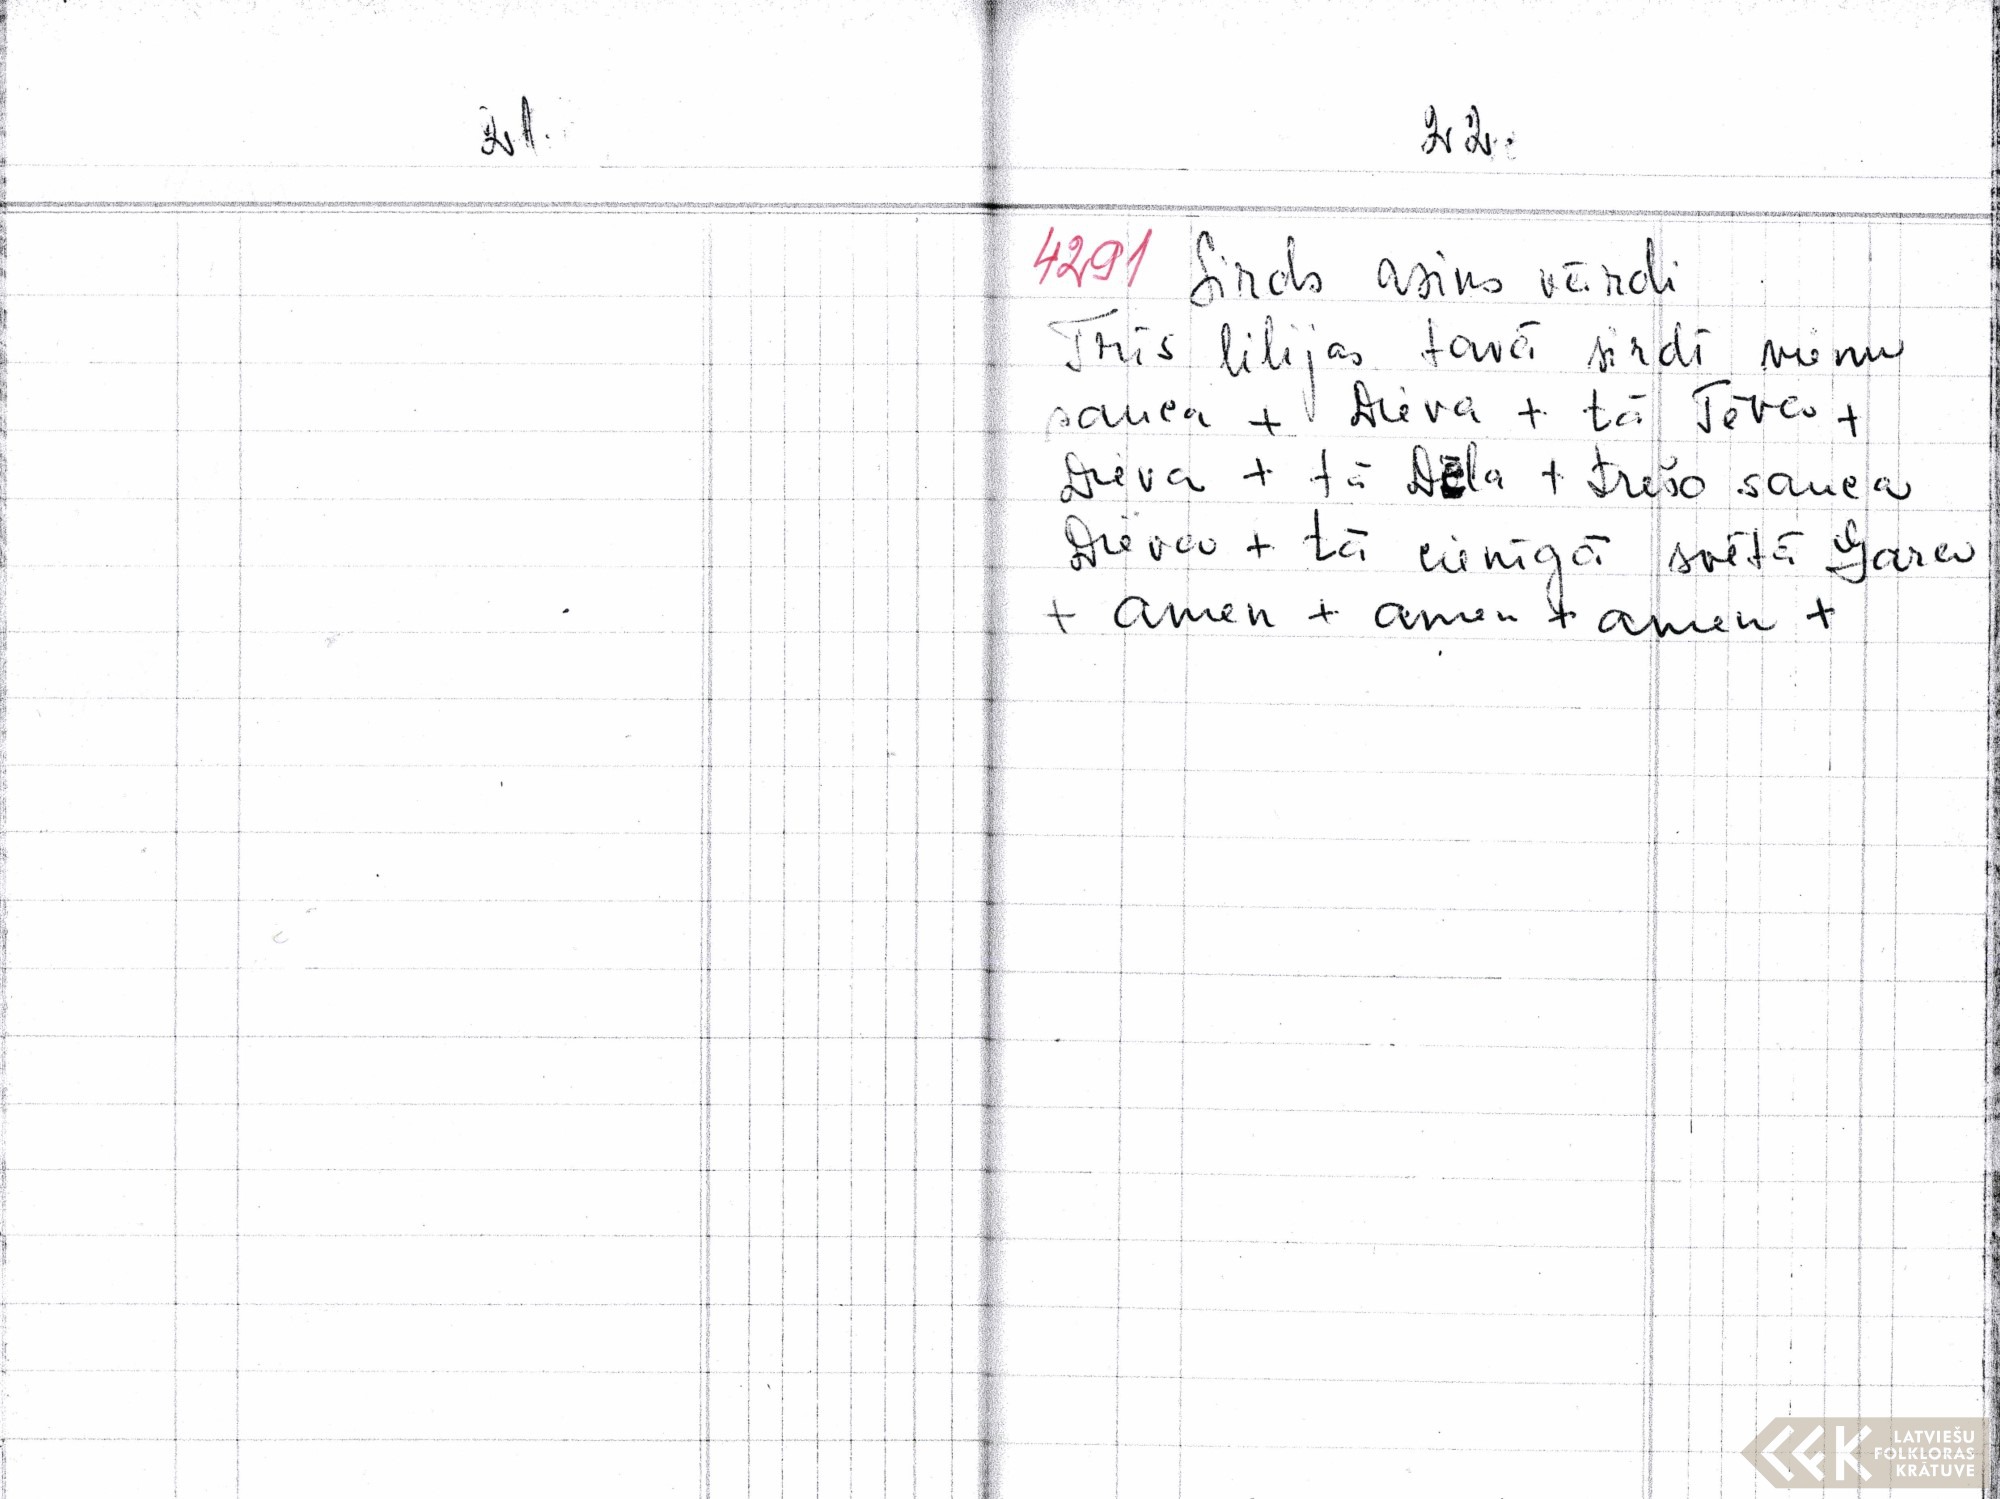 21.
22.
4291 Sirds asins vārdi
Trīs lilijas tavā sirdī vienu
sauca + Dieva + tā Tēva +
Dieva + tā Dēla + trešo sauca
Dieva + tā cienīgā svētā Gara
+ amen + amen + amen +
LATVIEŠU
FOLKLORAS
KRĀTUVE